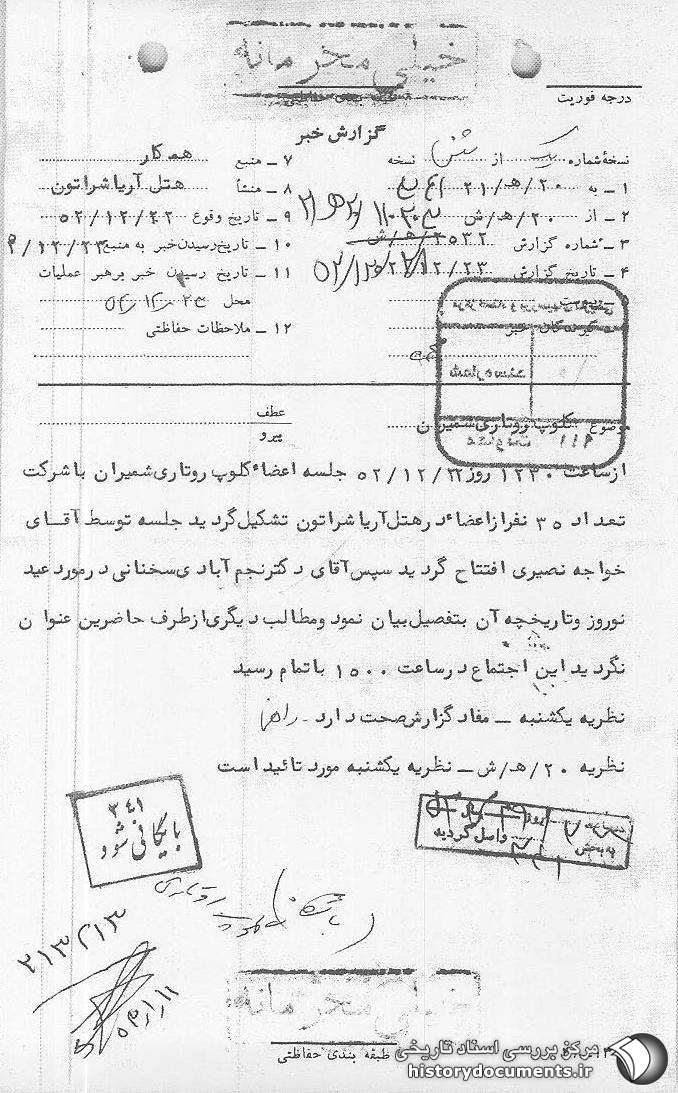 خیلی محرمانه
طبقه بندی حفاظتی
درجه فوریت
گزارش خبر
نسخهٔ شماره یک از شش نسخه
۱ ـ به ۲۰/هـ/۲۱
۲ ـ از ۲۰/هـ/ش
۳ ـ شماره گزارش
۴ ـ تاریخ گزارش
۷ ـ منبع همکار
۸ ـ منشأ هتل آریا شراتون
۹ ـ تاریخ وقوع ۵۲/۱۲/۲۲
۱۰ ـ تاریخ رسیدن خبر به منبع
۱۱ ـ تاریخ رسیدن خبر برهبر عملیات
محل
۱۲ ـ ملاحظات حفاظتی
گیرندگان خبر
عطف
پیرو
موضوع کلوپ روتاری شمیران
ازساعت ۱۲۳۰ روز ۵۲/۱۲/۲۲ جلسه اعضاء کلوپ روتاری شمیران با شرکت
تعداد ۳۵ نفر ازاعضاء درهتل آریا شراتون تشکیل گردید جلسه توسط آقای
خواجه نصیری افتتاح گردید سپس آقای دکترنجم آبادی سخنانی درمورد عید
نوروز وتاریخچه آن بتفصیل بیان نمود ومطالب دیگری ازطرف حاضرین عنوان
نگردید این اجتماع درساعت ۱۵۰۰ باتمام رسید
نظریه یکشنبه ـ مفاد گزارش صحت دارد ـ
نظریه ۲۰/هـ/ش ـ نظریه یکشنبه مورد تائید است
۳۴۱
بایگانی شود
روز
واصل گردید
بخش
۲۱۳۲۱۳
خیلی محرمانه
طبقه بندی حفاظتی
مرکز بررسی اسناد تاریخی
historydocuments.ir